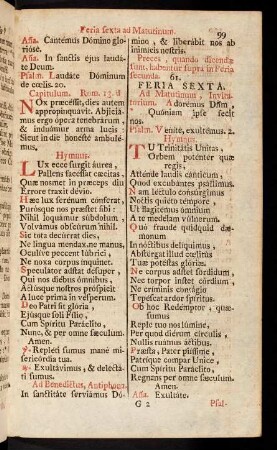 Feria sexta ad Matutinum.
99
Aña. Cantémus Dómino glo-
riósè.
Aña. In sanctis ejus laudá-
te Deum.
Psalm. Laudáte Dóminum
de cœlis. 20.
Capitulum. Rom. 13. d
NOx præcéssit, dies autem
appropinquávit. Abjiciá-
mus ergo ópera tenebrárum,
& induámur arma lucis:
Sicut in die honéstè ambulé-
mus.
Hymnus.
LUx ecce surgit áurea,
Pallens facéssat cæcitas,
Quæ nosmet in præceps diu
Errore traxit dévio.
Hæc lux serénum cónferat,
Purósque nos præstet sibi:
Nihil loquámur súbdolum,
Volvámus obscúrum nihil.
Sic tota decúrrat dies,
Ne lingua mendax, ne manus,
Oculíve peccent lúbrici,
Ne noxa corpus ínquinet.
Speculátor adstat désuper,
Qui nos diébus ómnibus,
Actúsque nostros próspicit
A luce prima in vésperum.
Deo Patri sit glória,
Ejúsque soli Fílio,
Cum Spíritu Paráclito,
Nunc, & per omne sæculum.
Amen.
℣. Repléti sumus mane mi-
sericórdia tua.
℟. Exultávimus, & delectá-
ti sumus.
Ad Benedictus, Antiphona.
In sanctitáte serviámus Dó-
mino, & liberábit nos ab
inimícis nostris.
Preces, quando dicendæ
sunt, habentur supra in Feria
secunda. 61.
FERIA SEXTA.
Ad Matutinum, Invita-
torium. Adorémus Dñm,
Quóniam ipse fecit
nos.
Psalm. Veníte, exultémus. 2.
Hymnus.
TU Trinitátis Unitas,
Orbem poténter quæ
regis,
Atténde laudis cánticum,
Quod excubántes psállimus.
Nam léctulo consúrgimus
Noctis quiéto témpore,
Ut flagitémus ómnium
A te medélam vúlnerum.
Quo fraude quidquid dæ-
monum
In nóctibus delíquimus,
Abstérgat illud cœlitùs
Tuæ potéstas glóriæ.
Ne corpus adsit sórdidum,
Nec torpor instet córdium,
Ne críminis contágio
Tepéscat ardor spíritus.
Ob hoc Redémptor, quæ-
sumus
Reple tuo nos lúmine,
Per quod diérum círculis,
Nullis ruámus áctibus.
Præsta, Pater piíssime,
Patríque compar Unice,
Cum Spíritu Paráclito,
Regnans per omne sæculum.
Amen.
Aña. Exultáte.
G 2
Psal-